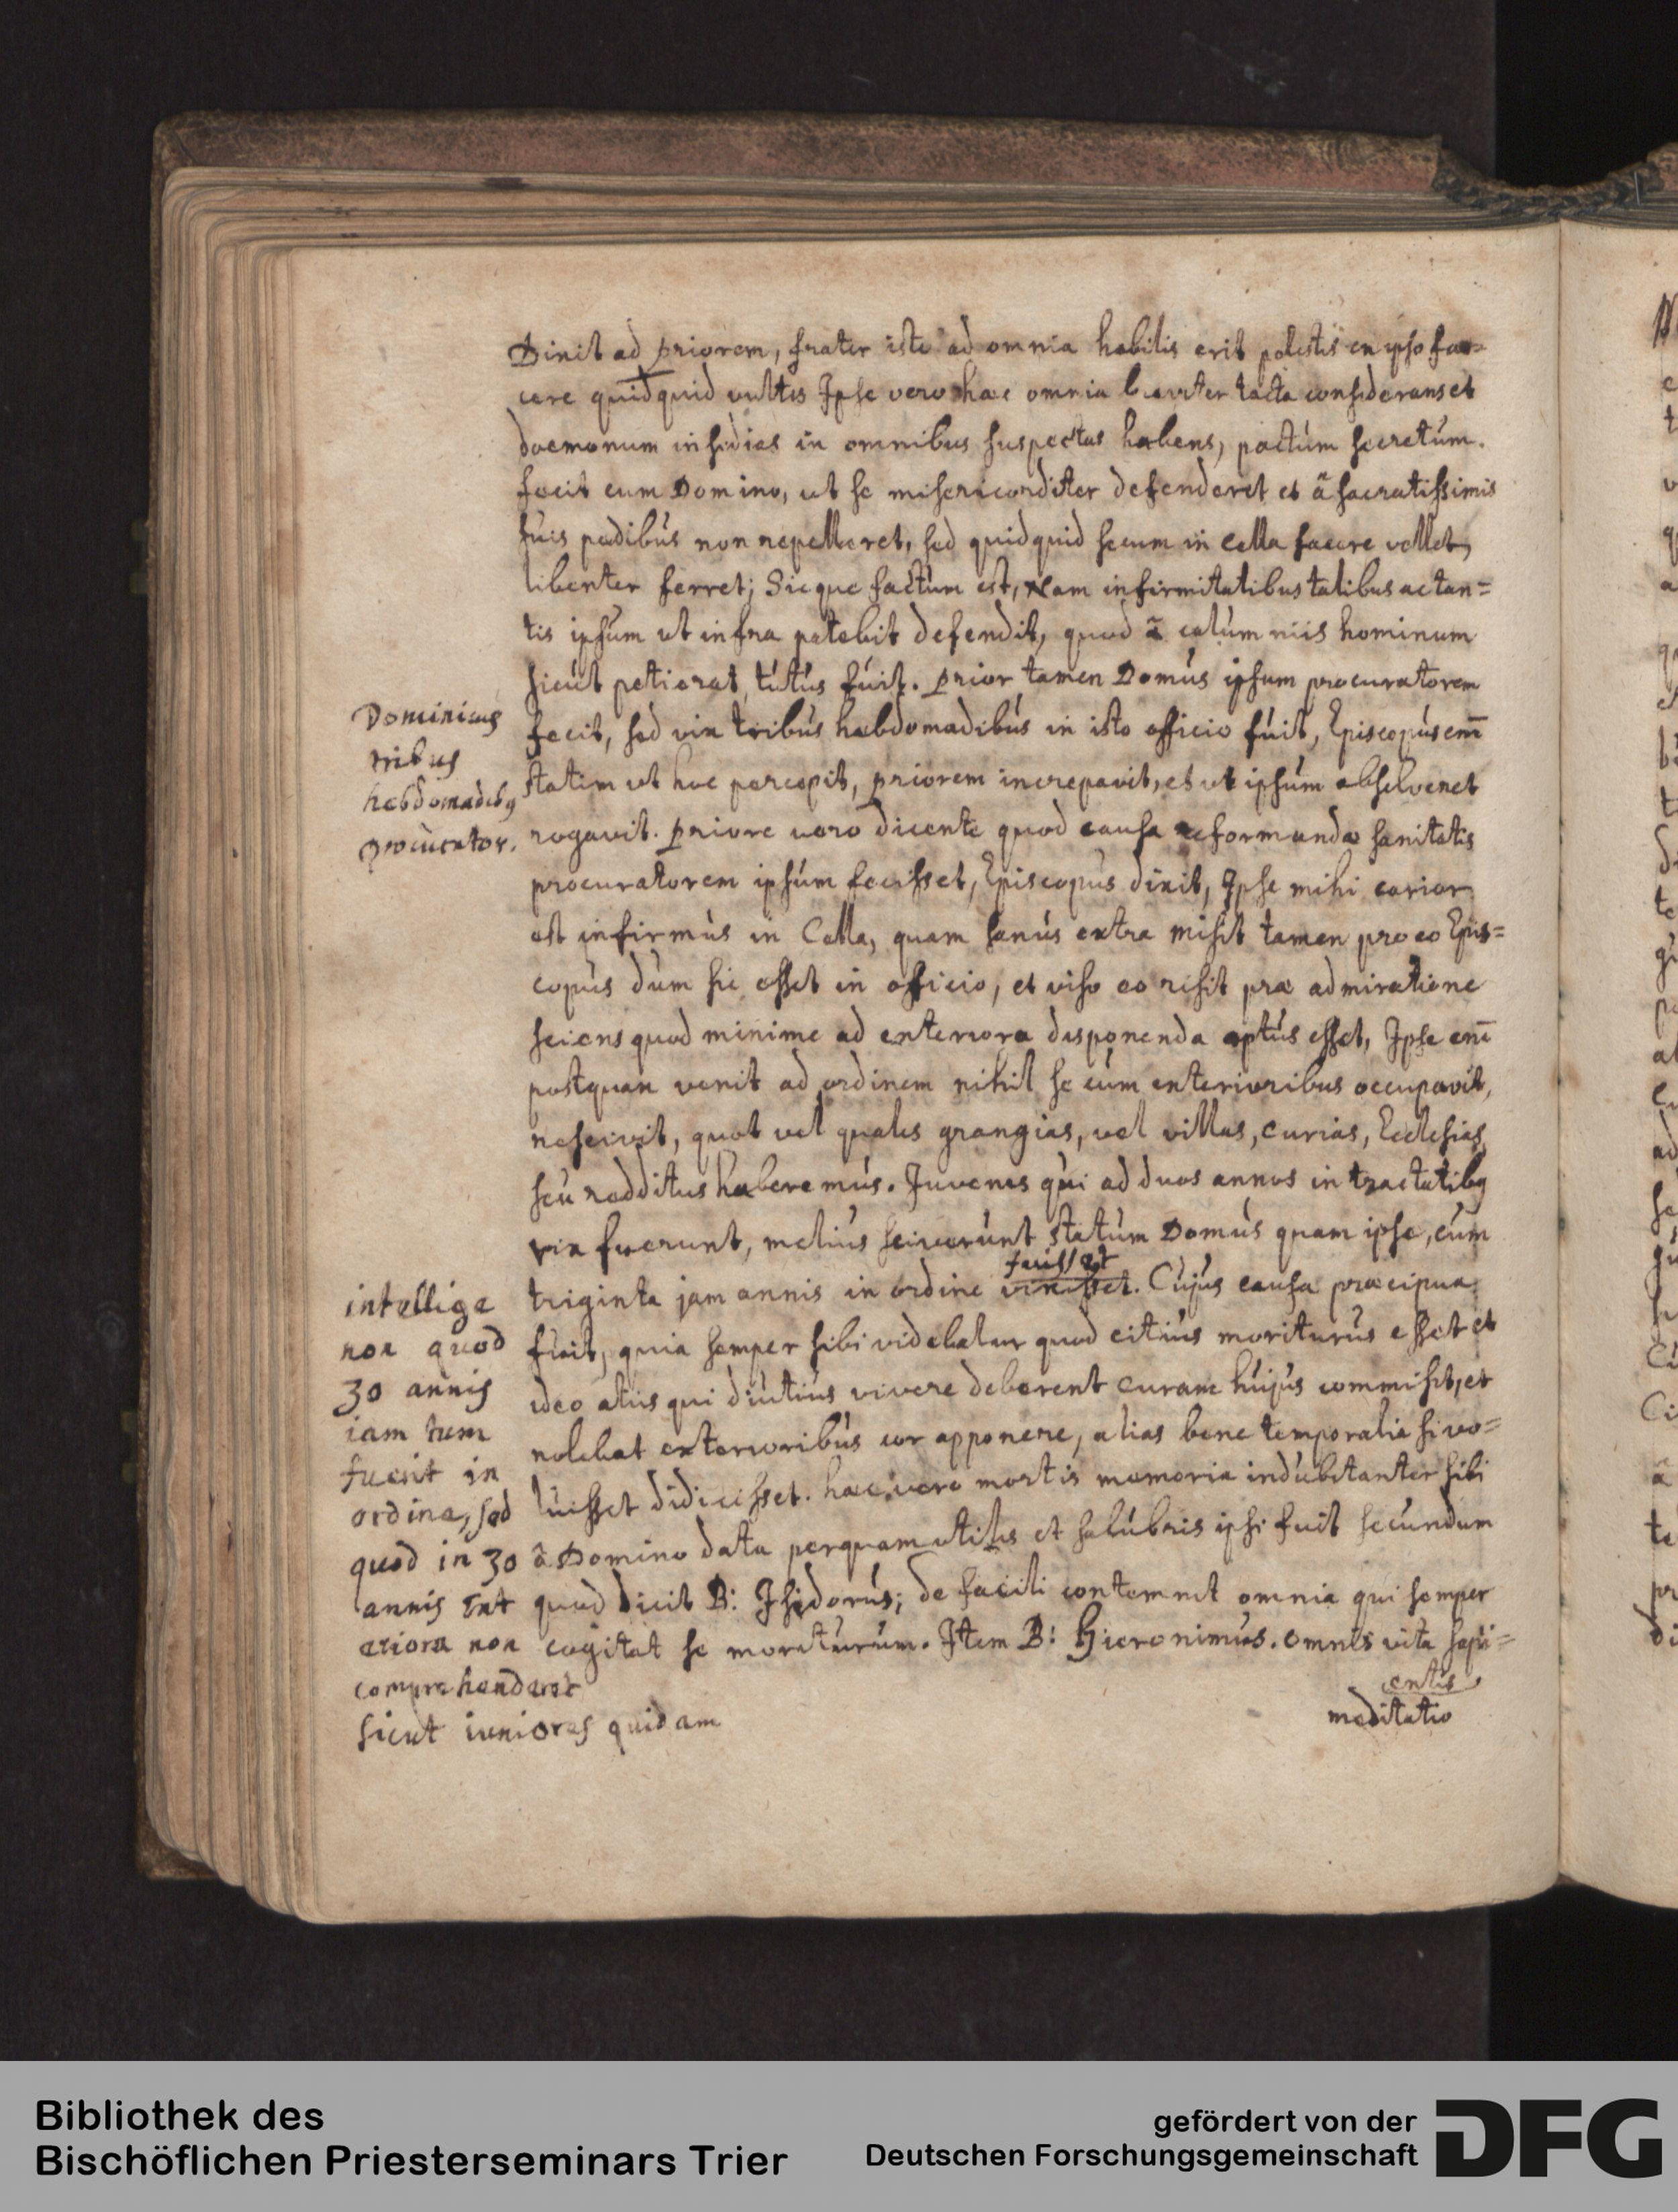 Dixit ad priorem, frater iste ad omnia habilis erit potestis ex ipso fa-
cere quidquid vultis Ipse vero hac omnia breviter tacta considerans et
daemonum insidias in omnibus suspectas habens, pactum secretum.
fecit cum Domino, ut se misericorditer defenderet et â sacratissimis
suis pedibus non repelleret, sed quidquid secum in cella facere vellet,
libenter ferret; Sicque factum est, Nam infirmitatibus talibus ac tan=
tis ipsum ut infra patebit defendit, quod â calumniis hominum
sicut petierat tutus fuit. Prior tamen Domus ipsum procuratorem
fecit, sed vix tribus habdomadibus in isto officio fuit, Episcopus em̄
statim ut hoc percepit, priorem increpavit, et ut ipsum absolveret
rogavit. Priore vero dicente quod causa reformanda sanitatis
procuratorem ipsum fecisset, Episcopus dixit, Ipse mihi carior
est infirmus in Cella, quam sanus extra misit tamen pro eo Epis=
copus dum sic esset in officio, et viso eo risit prae admiratione
sciens quod minime ad exteriora disponenda aptus esset, Ipse em̄
postquam venit ad ordinem nihil se cum exterioribus occupavit,
nescivit, quot vel quales grangias, vel villas, curias, Ecclesias,
seu redditus haberemus. Juvenes qui ad duos annos in tractatibq
vix fuerunt, melius sciverunt statum Domus quam ipse, cum
fuisset
triginta jam annis in ordine vixisset. Cujus causa praecipua
fuit, quia semper sibi videbatur quod citius moriturus esset et
ideo aliis qui diutius vivere deberent curam hujus commisit, et
nolebat exterioribus cor apponere, alias bene temporalia si vo=
luisset didicisset. haec vero mortis memoria indubitanter sibi
â Domino data perquam utilis et salubris ipsi fuit secundum
quod dicit B: Isidorus; de facili contemnit omnia qui semper
cogitat se moriturum. Item B: Hieronimus. omnis vita sapi=
entis
meditatio
Dominicus
tribus
hebdomadibq
procurator.
intellige
non quod
30 annis
iam tum
fuerit in
ordine, sed
quod in 30
annis Ext
eriora non
comprehenderit
sicut iuniores quidam
Bibliothek des
Bischöflichen Priesterseminars Trier
gefördert von der
Deutschen Forschungsgemeinschaft
DFG